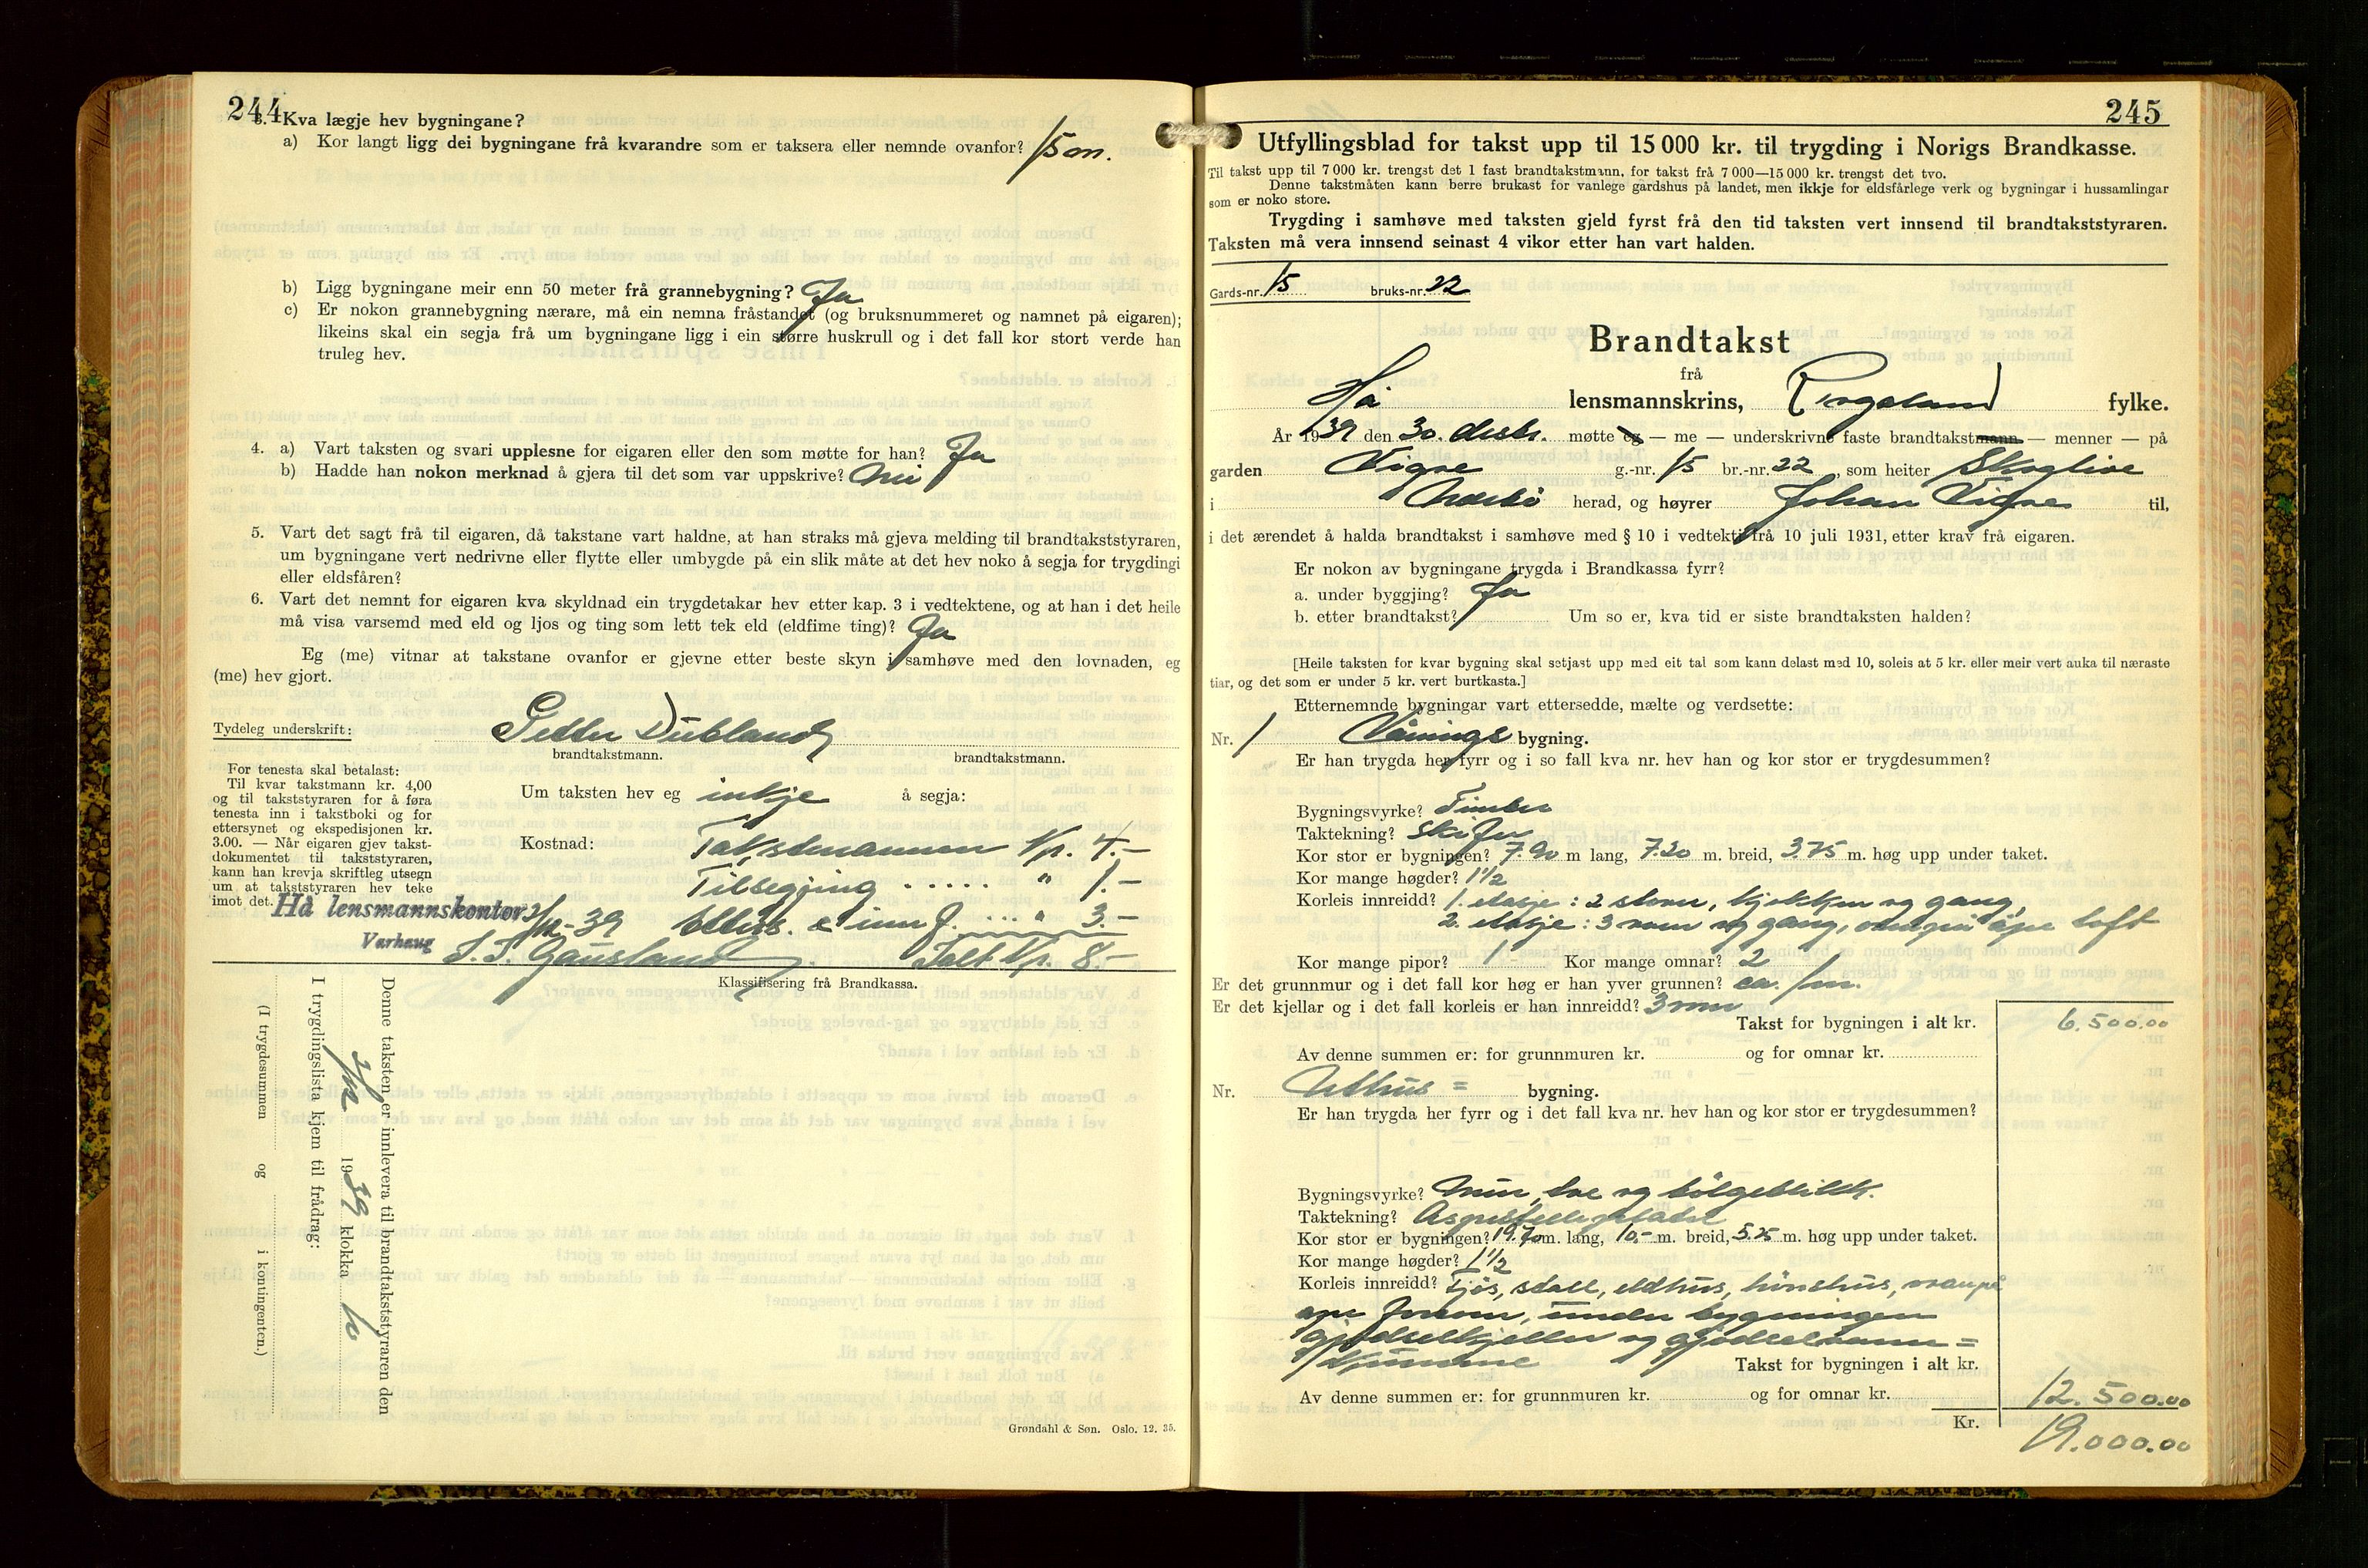 244
3. Kva lægje hev bygningane?
a) Kor langt ligg dei bygningane frå kvarandre som er taksera eller nemnde ovanfor? 15 m.
b) Ligg bygningane meir enn 50 meter frå grannebygning? Ja
c) Er nokon grannebygning nærare, må ein nemna fråstandet (og bruksnummeret og namnet på eigaren);
likeins skal ein segja frå um bygningane ligg i ein større huskrull og i det fall kor stort verde han
truleg hev.
4. a) Vart taksten og svari upplesne for eigaren eller den som møtte for han? Ja
b) Hadde han nokon merknad å gjera til det som var uppskrive? Nei
5. Vart det sagt frå til eigaren, då takstane vart haldne, at han straks må gjeva melding til brandtakststyraren,
um bygningane vert nedrivne eller flytte eller umbygde på ein slik måte at det hev noko å segja for trygdingi
eller eldsfåren?
6. Vart det nemnt for eigaren kva skyldnad ein trygdetakar hev etter kap. 3 i vedtektene, og at han i det heile
må visa varsemd med eld og ljos og ting som lett tek eld (eldfime ting)? Ja
Eg (me) vitnar at takstane ovanfor er gjevne etter beste skyn i samhøve med den lovnaden, eg
(me) hev gjort.
Tydeleg underskrift: Petter Dubland
brandtakstmann. brandtakstmann.
For tenesta skal betalast:
Til kvar takstmann kr. 4,00
og til takststyraren for å føra
tenesta inn i takstboki og for
ettersynet og ekspedisjonen kr.
3.00. — Når eigaren gjev takst-
dokumentet til takststyraren,
kann han krevja skriftleg utsegn
um at takststyraren hev teke
imot det.
Um taksten hev eg inkje å segja:
Kostnad: Takstmannen Kr. 4.-
Tilsegjing ...... " 1.-
Hå lensmannskontor -39 Etters. & innf. .... " 3.-
Varhaug
Gausland Ialt Kr. 8.-
Klassifisering frå Brandkassa.
Denne taksten er innlevera til brandtakststyraren den
1939 klokka
I trygdingslista kjem til frådrag:
(I trygdesummen og i kontingenten.)
Grøndahl & Søn. Oslo. 12. 35.
245
Utfyllingsblad for takst upp til 15 000 kr. til trygding i Norigs Brandkasse.
Til takst upp til 7 000 kr. trengst det 1 fast brandtakstmann, for takst frå 7 000—15 000 kr. trengst det tvo.
Denne takstmåten kann berre brukast for vanlege gardshus på landet, men ikkje for eldsfårlege verk og bygningar i hussamlingar
som er noko store.
Trygding i samhøve med taksten gjeld fyrst frå den tid taksten vert innsend til brandtakststyraren.
Taksten må vera innsend seinast 4 vikor etter han vart halden.
Gards-nr. 15 bruks-nr. 22
Brandtakst
frå
Hå lensmannskrins, Rogaland fylke.
År 1939 den 30. desbr. møtte eg — me — underskrivne faste brandtakstmann — menner — på
garden Vigre g.-nr. 15 br.-nr. 22, som heiter Skoglive
i Nærbø herad, og høyrer Johan Vigre til,
i det ærendet å halda brandtakst i samhøve med § 10 i vedtekti frå 10 juli 1931, etter krav frå eigaren.
Er nokon av bygningane trygda i Brandkassa fyrr?
a. under byggjing? Ja
b. etter brandtakst? Um so er, kva tid er siste brandtaksten halden?
[Heile taksten for kvar bygning skal setjast upp med eit tal som kann delast med 10, soleis at 5 kr. eller meir vert auka til næraste
tiar, og det som er under 5 kr. vert burtkasta.]
Etternemnde bygningar vart ettersedde, mælte og verdsette:
Nr. 1 Vånings bygning.
Er han trygda her fyrr og i so fall kva nr. hev han og kor stor er trygdesummen?
Bygningsvyrke? Timber
Taktekning? Skifer
Kor stor er bygningen? 7.90 m lang, 7.20 m. breid, 3.75 m. høg upp under taket.
Kor mange høgder? 1½
Korleis innreidd? 1. etasje: 2 stover, kjøkken og gang,
2. etasje: 3 rom og gang, ovenpå åpe loft
Kor mange pipor? 1 Kor mange omnar? 2
Er det grunnmur og i det fall kor høg er han yver grunnen? ca. 1 m.
Er det kjellar og i det fall korleis er han innreidd? 3 rom
Takst for bygningen i alt kr. 6.500.00
Av denne summen er: for grunnmuren kr. og for omnar kr.
Nr. Uthus = bygning.
Er han trygda her fyrr og i det fall kva nr. hev han og kor stor er trygdesummen?
Bygningsvyrke? Mur, tre og bølgeblikk.
Taktekning?
Kor stor er bygningen? 19.70 m. lang, 10.- m. breid, 5.25 m. høg upp under taket.
Kor mange høgder? 1½
Korleis innreidd? Fjøs, stall, eldhus, hønsehus, ovanpå
ope forrom, under bygningen
gjødselkjeller og gjødselvann=
kumme
Takst for bygningen i alt kr. 12.500.00
Av denne summen er: for grunnmuren kr. og for omnar kr.
Kr. 19.000.00